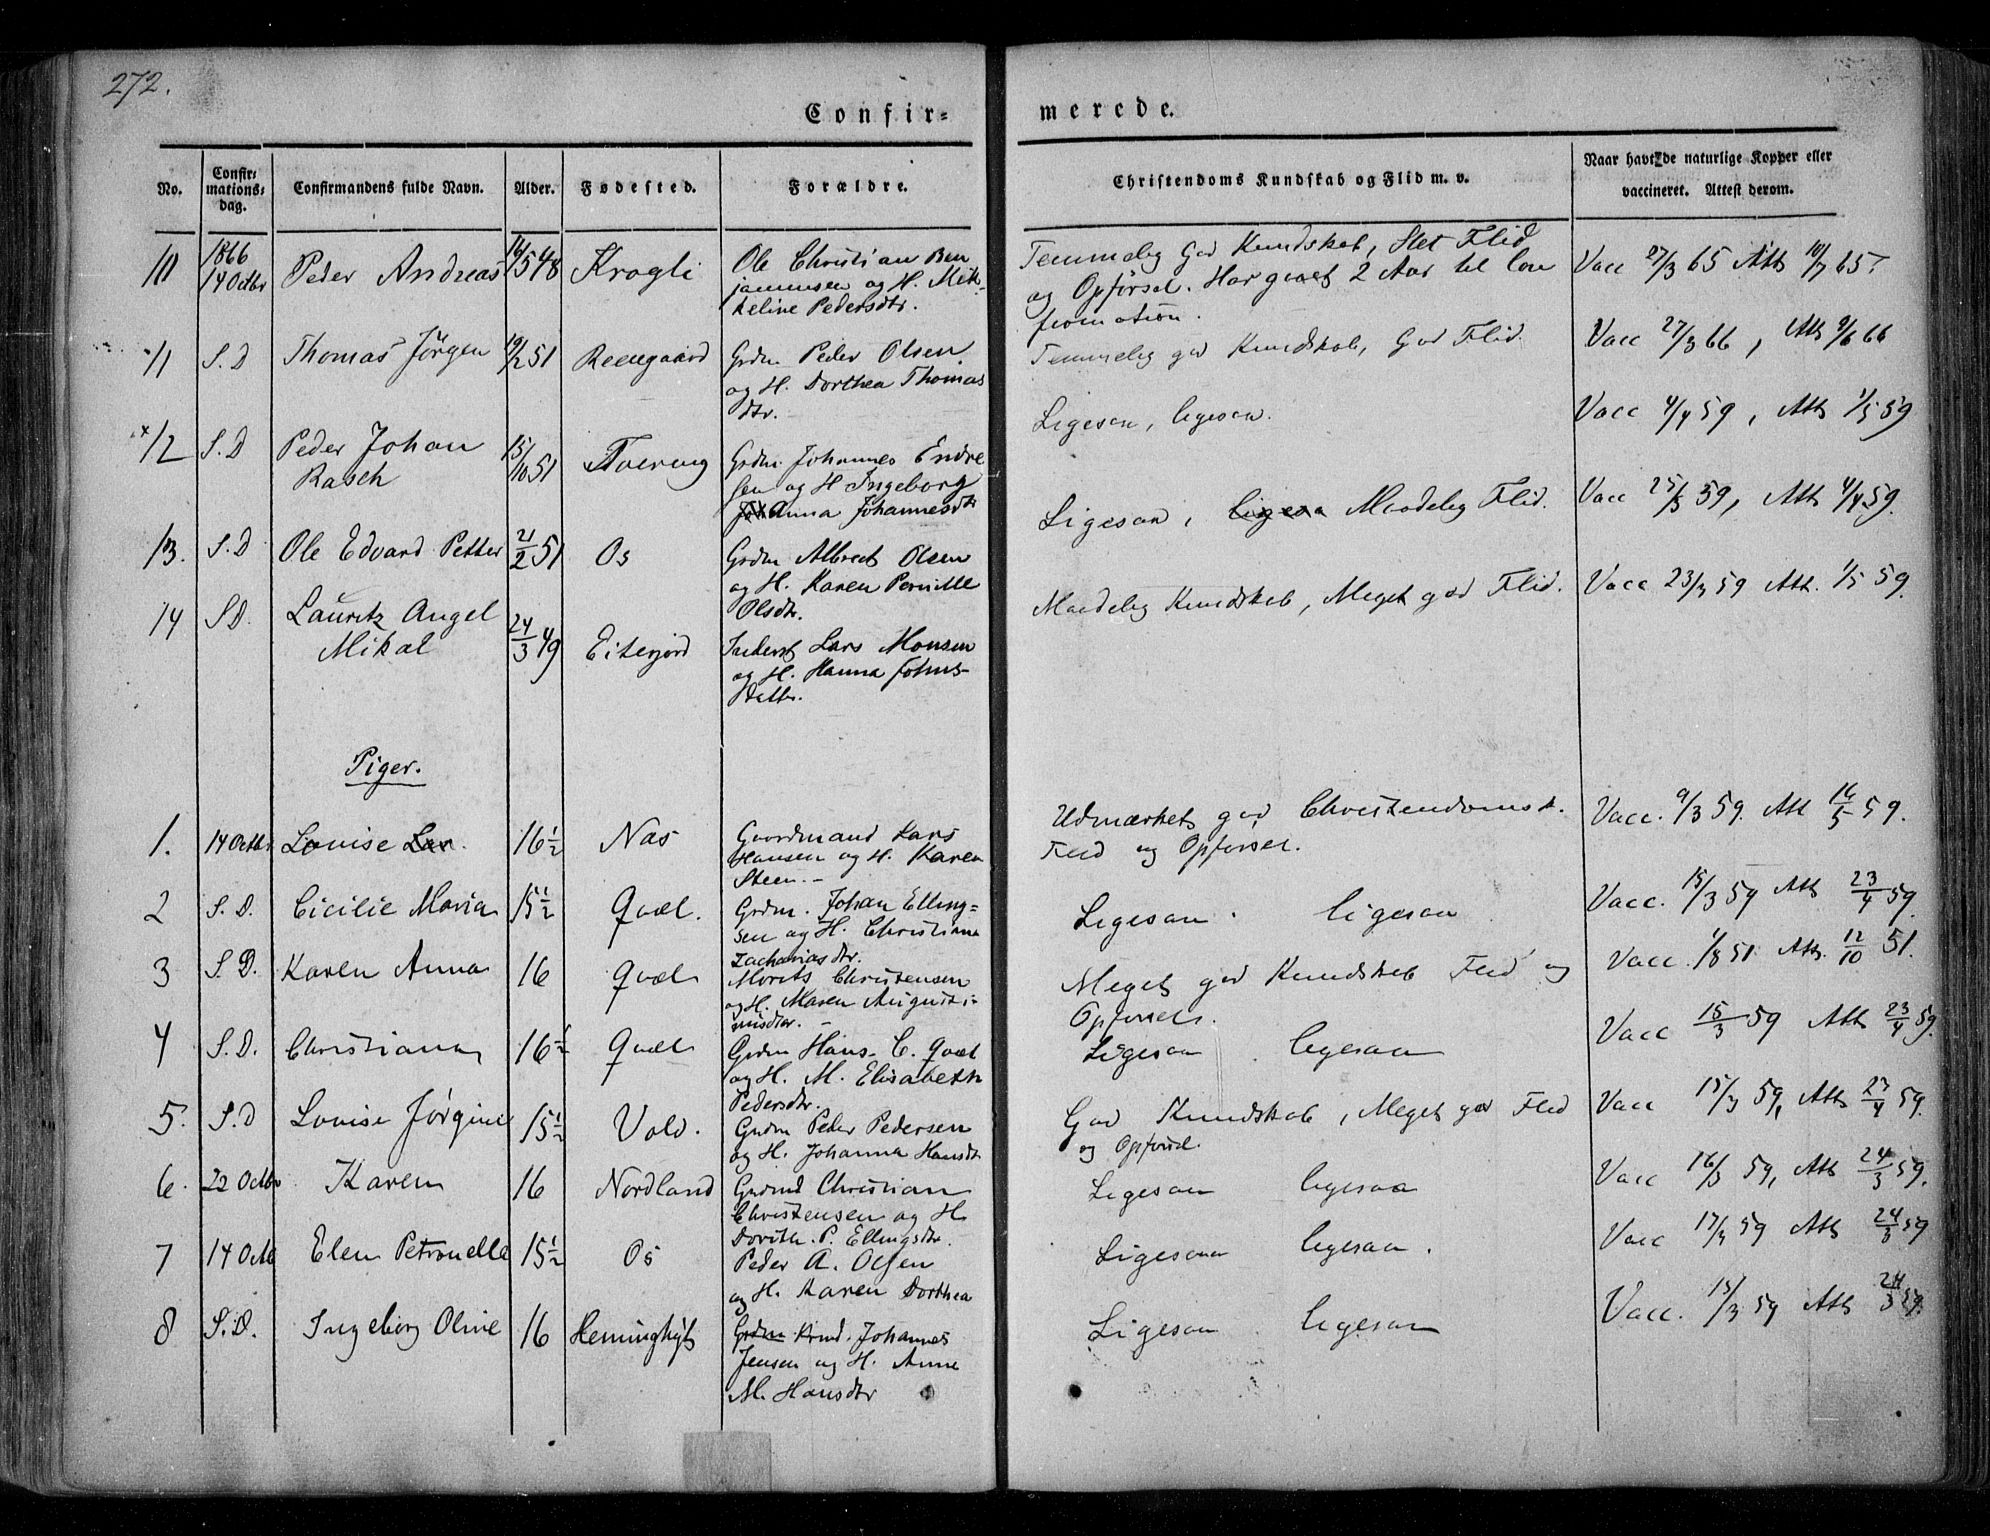 272.
Confir=
merede.
No.
Confir-
mations-
dag.
Confirmandens fulde Navn.
Alder.
Fødested.
Forældre.
Christendoms Kundskab og Flid m. v.
Naar havt de naturlige Kopper eller
vaccineret. Attest derom.
10 1866 14 Octbr Peder Andreas 48 Krogli
Ole Christian Ben
jaminsen og H. Mik-
keline Pedersdtr.
Temmelig God Kundskab, Slet Flid
og Opførsel. Har gaaet 2 Aar til Con
firmation.
Vacc 27/3 65 Att 10/7 65.
11 S. D Thomas Jörgen 19/2 51
Grdm Peder Olsen
og H. Dorthea Thomas
dtr.
Temmelig god Kundskab, God Flid.
Vacc 27/3 66, Att 9/6 66
12 S. D Peder Johan
Rasch
15/10 51
Grdm Johannes Endre
sen og H Ingeborg
Anna Johannesdt
Ligesaa, ligesaa.
Vacc 4/4 59, Att 1/5 59
13. S. D Ole Edvard Petter 21/2 51 Os
Grdm Albrect Olsen
og H. Karen Pernille
Olsdtr.
Ligesaa, Maadelig Flid.
Vacc 25/3 59, Att 4/4 59.
14 S D. Lauritz Angel
Mikal
24/3 49 Eiterjord
Inderst Lars Monsen
og H. Hanna Johns-
Datter.
Maadelig Kundskab, Meget god Flid.
Vacc 23/3 59 Att. 1/5 59.
Piger.
1. 14 Octbr Lovise 16 1/2 Nas
Gaardmand Lars
Hansen og H. Karen
Steen.-
Udmærket god Christendomsk.
Flid og Opførsel.
Vacc. 9/3 59. Att 16/5 59.
2 S. D. Cicilie Maria 15 1/2 Qvæl.
Grdm. Johan Elling=
sen og H. Christiana
Zachariasdtr.
Ligesaa. ligesaa
Vacc. 15/3 59 Att 23/4 59.
3 S. D. Karen Anna 16 Qvæl
Morits Christensen
og H. Maren Augusti-
nusdtr. -
Meget god Kundskab Flid og
Opførsel.
Vacc. 1/8 51. Att. 12/10 51.
4 S. D. Christiana 16 1/2 Qvæl
Grdm Hans C. Qvæl
og H. M. Elisabeth
Pedersdtr.
Ligesaa. ligesaa
Vacc 15/3 59 Att 23/4 59.
5. S. D Lovise Jørgine 15 1/2 Vold.
Grdm Peder Pedersen
og H. Johanna Hansdt
God Kundskab, Meget god Flid
og Opførsel.
Vacc 15/3 59, Att 23/4 59.
6. 22 Octbr Karen 16 Nordland
Grdmd Christian
Christensen og H
Dorith. P. Ellingsdtr.
Ligesaa ligesaa
Vacc 16/3 59, Att 24/3 59.
7 14 Octb Elen Petronelle 15 1/2 Os
Peder A. Olsen
og H. Karen Dorthea
Ligesaa ligesaa.
Vacc 17/3 59 Att 24/3 59
8 S. D. Ingeborg Olive 16 Heminghyt
Grdm Johannes
Jensen og H. Anne
M. Hansdtr
Ligesaa ligesaa
Vacc. 15/3 59 Att 24/3 59.